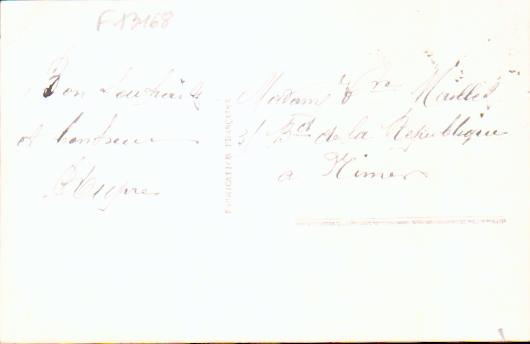 F 13168
Bon Souhaits
et bonheur
FABRICATION FRANÇAISE
Madame Vve Maillet
31 Bd de la République
a Nimes